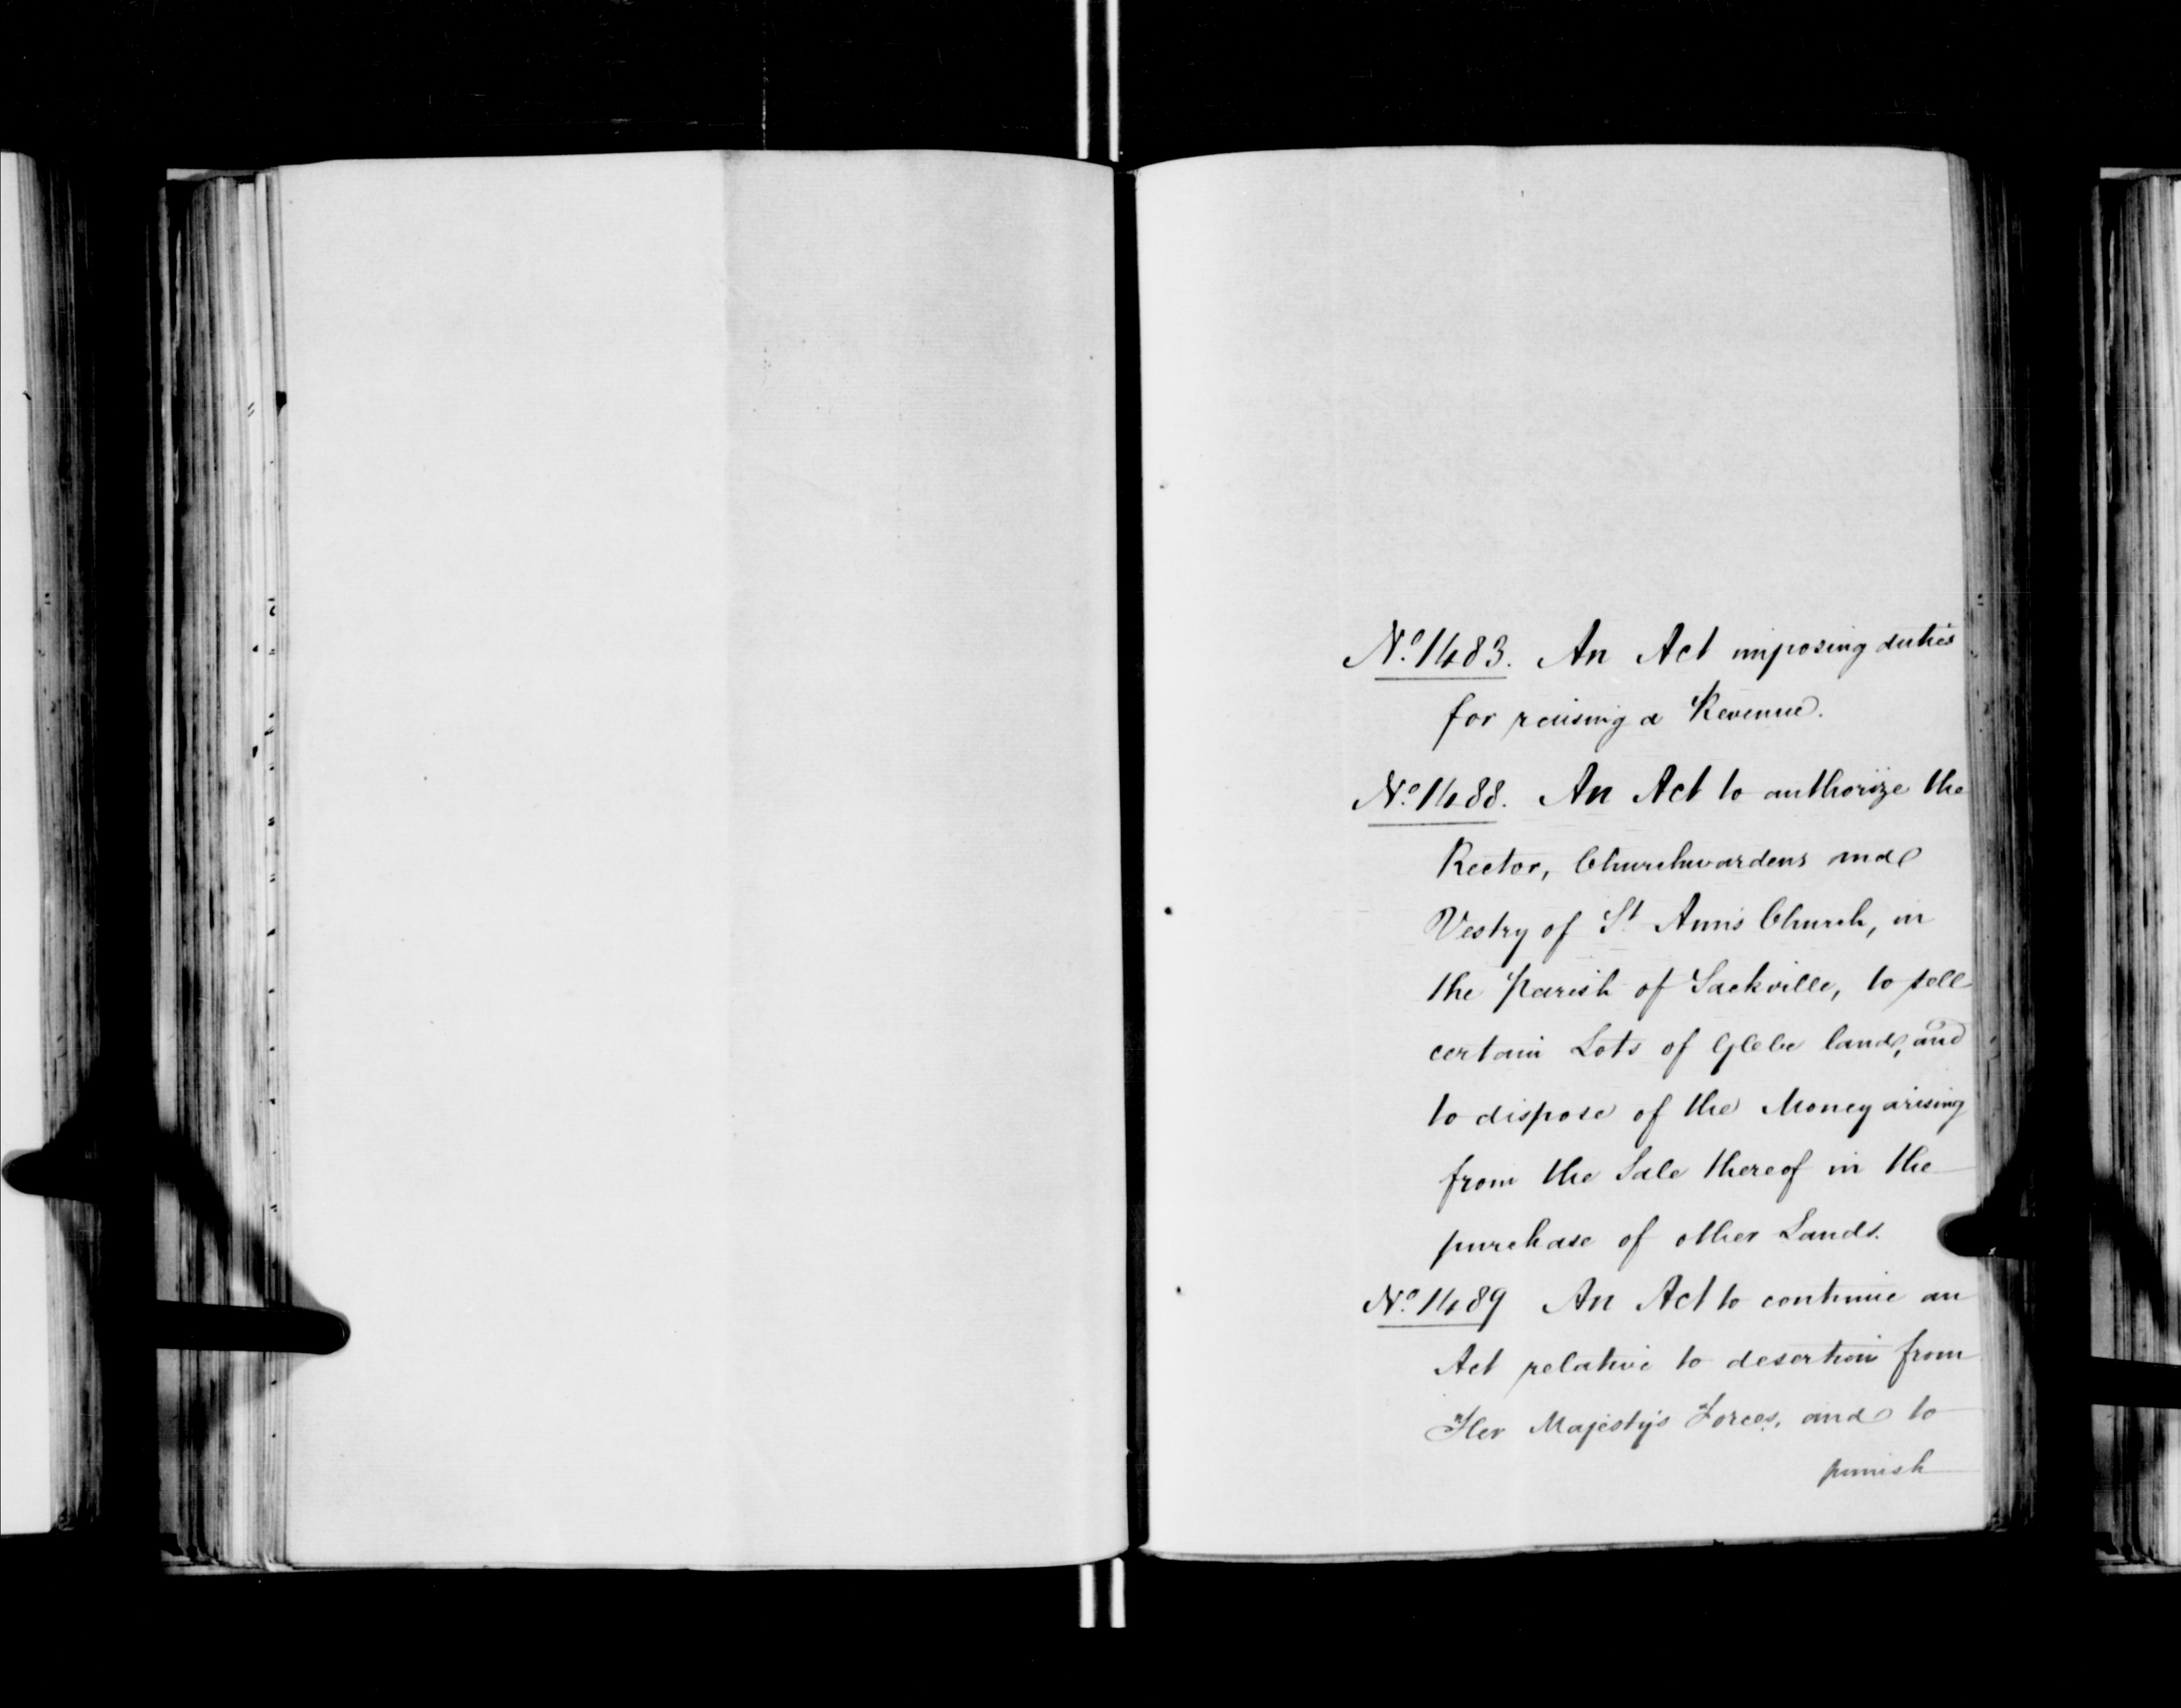 No. 1483. An Act imposing duties
for raising a Revenue.
No. 1488. An Act to authorize the
Rector, Churchwardens and
Vestry of St. Ann's Church, in
the Parish of Sackville, to sell
certain Lots of Glebe land, and
to dispose of the Money arising
from the Sale thereof in the
purchase of other Lands.
No. 1489 An Act to continue an
Act relative to desertion from
Her Majesty's Forces, and to
punish